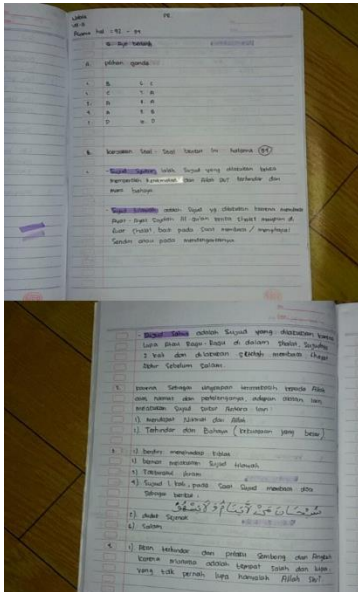 PR.
Agama hal : 92 -
A. pilihan ganda
1. B 6. C
2. C 7. A
3. A 8. A
4. A 9. B
5. D 10. D
B. Soal - Soal berikut ini
1. - Sujud Syukur ialah Sujud yang dilakukan ketika
memperoleh kenikmatan dari Allah SWT terhindar dari
mara bahaya.
- Sujud tilawah adalah Sujud yg dilakukan karena membaca
Ayat - Ayat Sajdah Al qur'an ketika Shalat maupun di
luar Shalat baik pada Saat membaca / menghapal
Sendiri atau pada mendengarkannya
- Sujud Sahwi adalah Sujud yang dilakukan karena
Lupa atau Ragu - Ragu di dalam Shalat, Sujudnya
2 kali dan dilakukan setelah membaca tahiyat
Akhir Sebelum Salam.
2. karena Sebagai ungkapan terimakasih kepada Allah
atas Nikmat dan pertolongannya, adapun alasan lain
melakukan Sujud Syukur Antara lain :
1). mendapat Nikmat dari Allah
2). Terhindar dari Bahaya ( yang besar )
3. 1) berdiri menghadap kiblat
2) berniat melakukan Sujud tilawah
3) Takbiratul ihram
4) Sujud 1 kali, pada Saat Sujud membaca doa
Sebagai berikut :
5). duduk Sejenak
6). Salam
4. 1) Akan terhindar dari prilaku Sombong dan Angkuh
karena manusia adalah tempat Salah dan lupa.
yang tdk pernah lupa hanyalah Allah SWT.